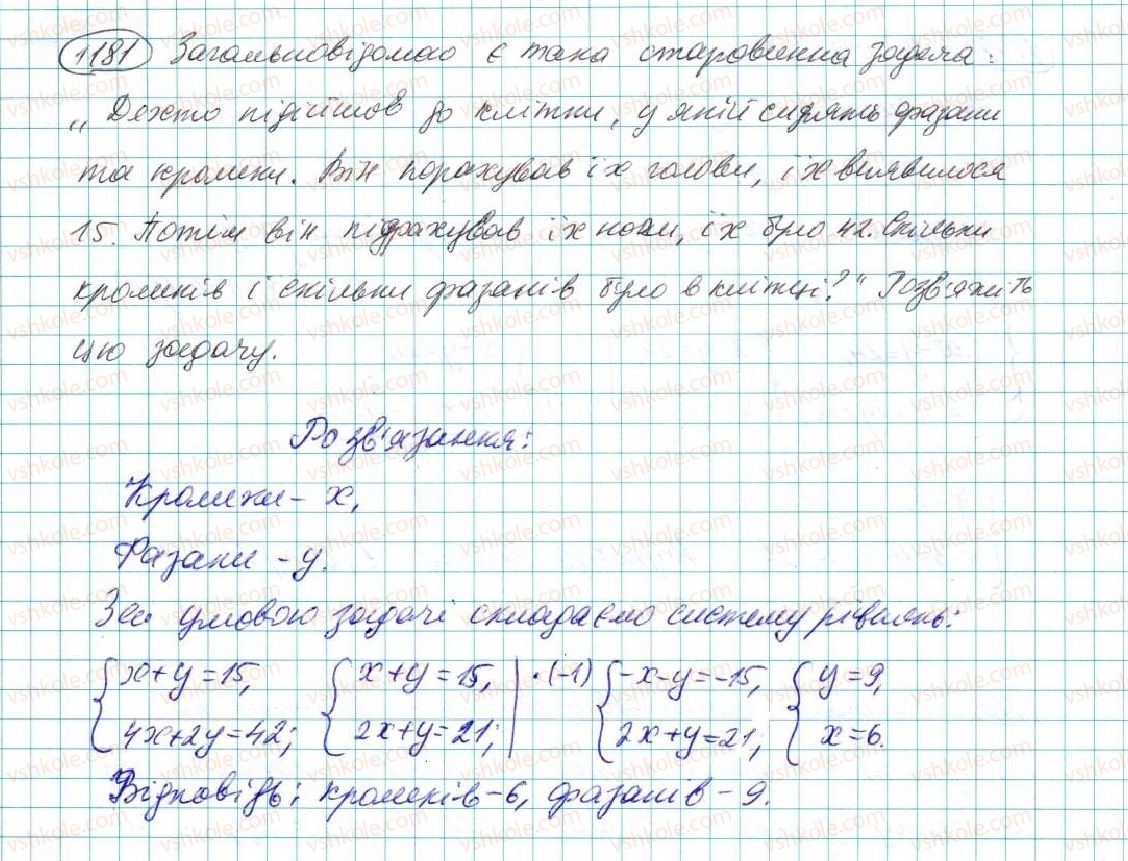 1181 Загальновідомою є така старовинна задача:
„Дехто підійшов до клітки, у якій сидять фазани
та кролики. Він порахував їх голови, їх виявилося
15. Потім він підрахував їх ноги, їх було 42. Скільки
кроликів і скільки фазанів було в клітці?“ Розв'яжіть
цю задачу.
Розв'язання:
Кролики – x,
Фазани – y.
За умовою задачі складаємо систему рівнянь:
{x+y=15, {x+y=15, | ·(-1) {-x-y=-15, {y=9,
4x+2y=42; 2x+y=21; 2x+y=21; x=6.
Відповідь: кроликів – 6, фазанів – 9.
vshkole.com